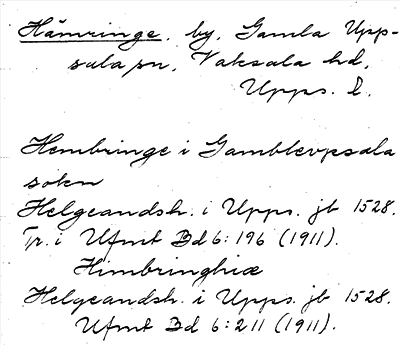 Hämringe, by, Gamla Upp-
sala sn, Vaksala hd,
Upps. l.
Hembringe i Gamblevpsala
sokn
Helgeandsh. i Upps. jb 1528.
Tr. i Ufmt Bd 6:196 (1911).
Himbringhiæ
Helgeandsh. i Upps. jb 1528.
Ufmt Bd 6:211 (1911).